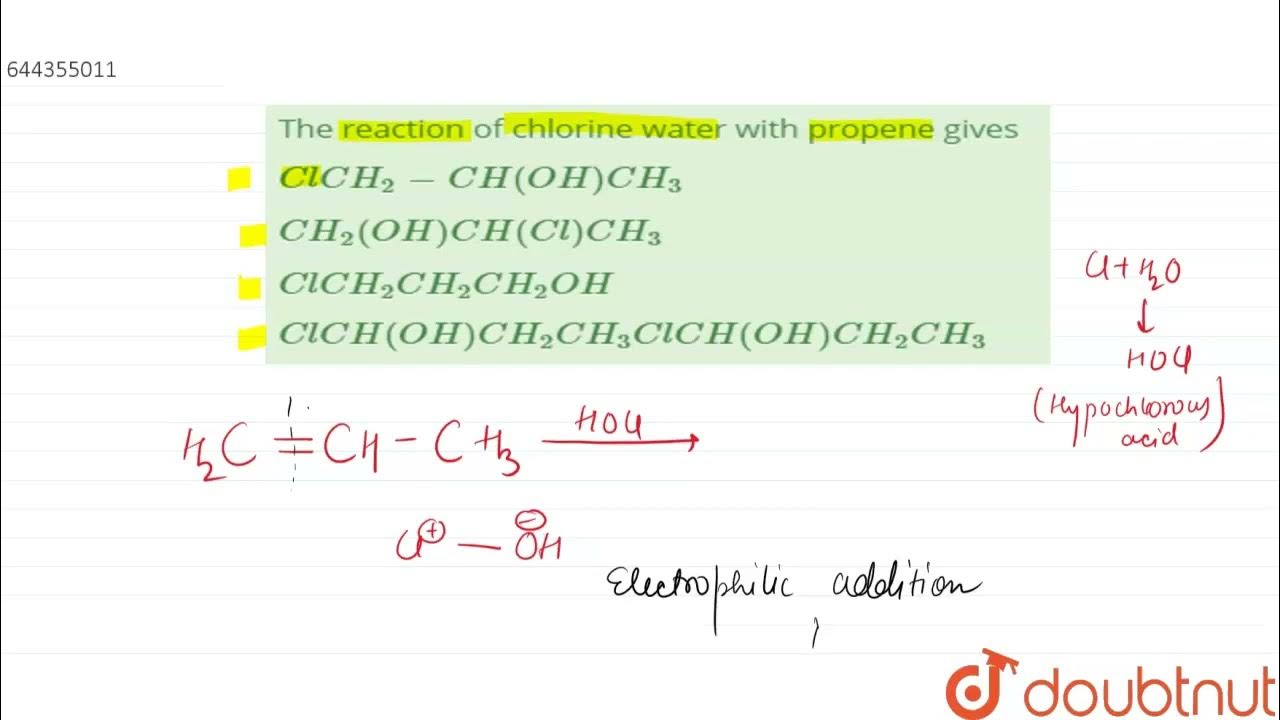 644355011
The reaction of chlorine water with propene gives
ClCH₂ − CH(OH)CH₃
CH₂(OH)CH(Cl)CH₃
ClCH₂CH₂CH₂OH
ClCH(OH)CH₂CH₃ClCH(OH)CH₂CH₃
Cl + H₂O
↓
HOCl
(Hypochlorous
acid)
H₂C = CH − CH₃ HOCl →
Cl⊕ − OH⊖
Electrophilic addition
doubtnut